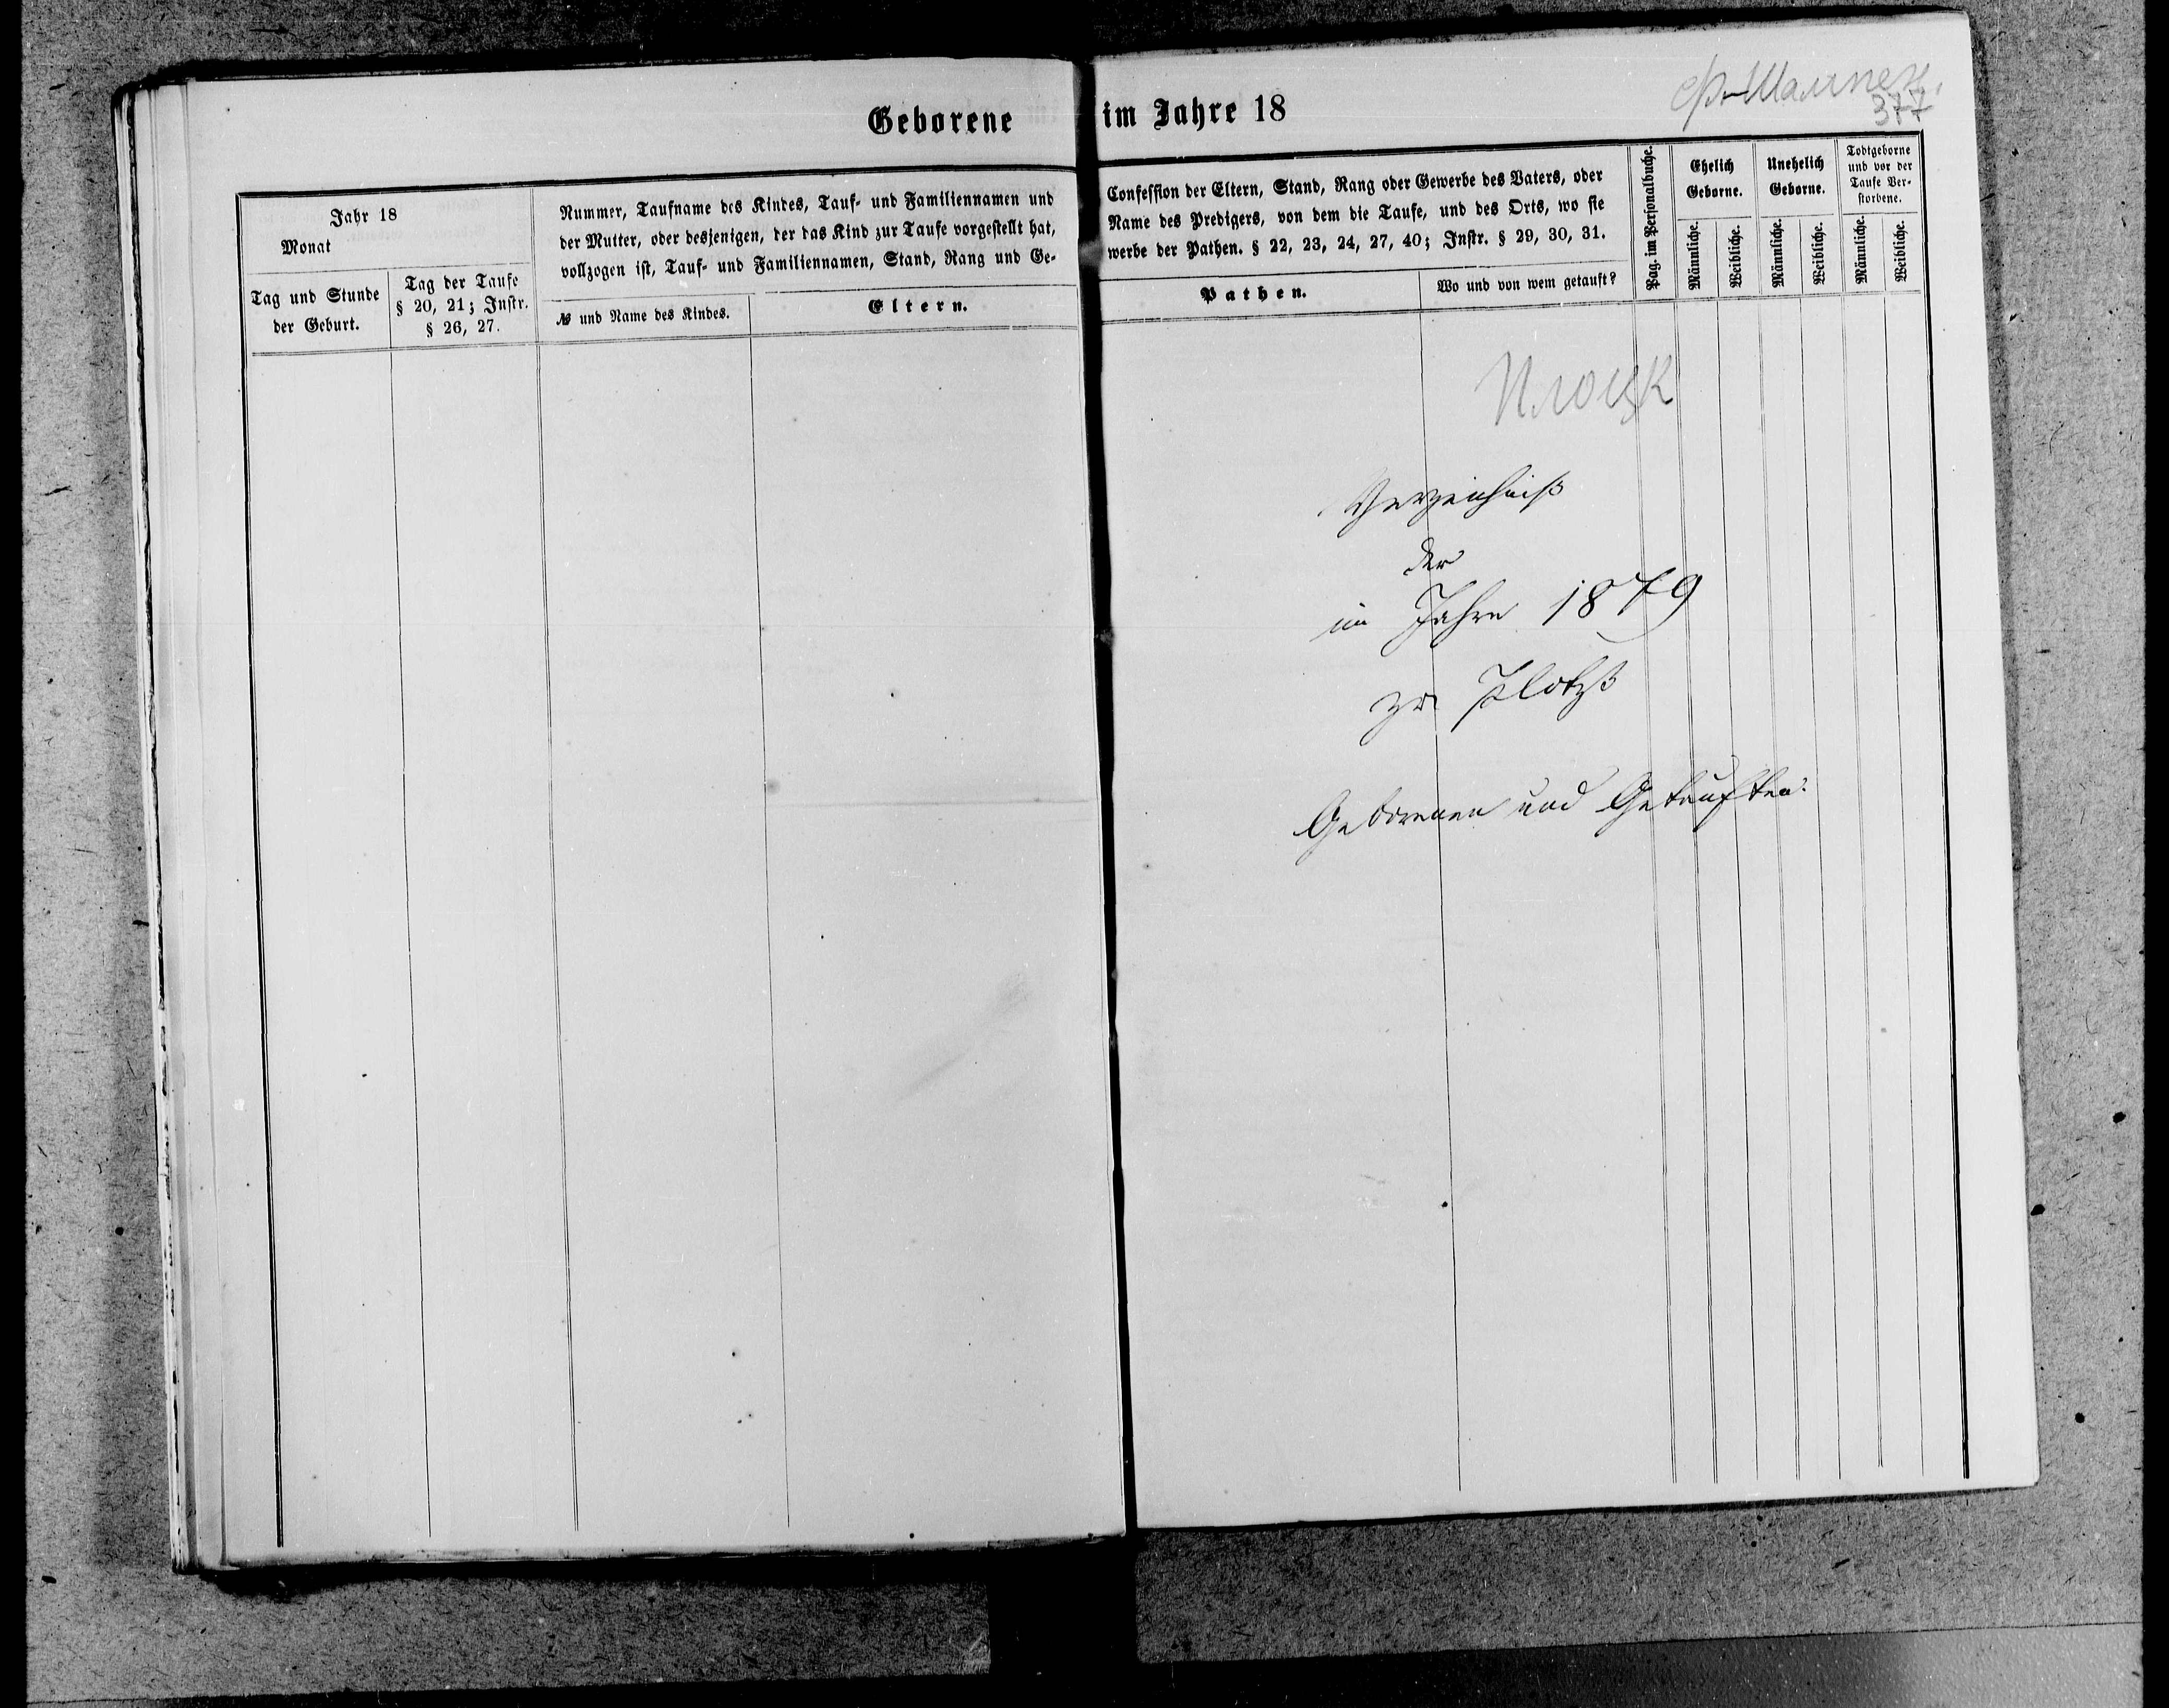 Geborene im Jahre 18
377
Jahr 18
Monat
Tag und Stunde
der Geburt.
Tag der Taufe
§ 20, 21; Instr.
§ 26, 27.
Nummer, Taufname des Kindes, Tauf- und Familiennamen und
der Mutter, oder desjenigen, der das Kind zur Taufe vorgestellt hat,
vollzogen ist, Tauf- und Familiennamen, Stand, Rang und Ge-
№ und Name des Kindes.
Eltern.
Confession der Eltern, Stand, Rang oder Gewerbe des Vaters, oder
Name des Predigers, von dem die Taufe, und des Orts, wo sie
werbe der Pathen. § 22, 23, 24, 27, 40; Instr. § 29, 30, 31.
Pathen.
Wo und von wem getauft?
Pag. im Personalbuche.
Ehelich
Geborne.
Männliche.
Weibliche.
Unehelich
Geborne.
Männliche.
Weibliche.
Todtgeborne
und vor der
Taufe Ver-
storbene.
Männliche.
Weibliche.
Плоцк
Verzeichniß
der
im Jahre 1879
zu Plotzk
Geborenen und Getauften.